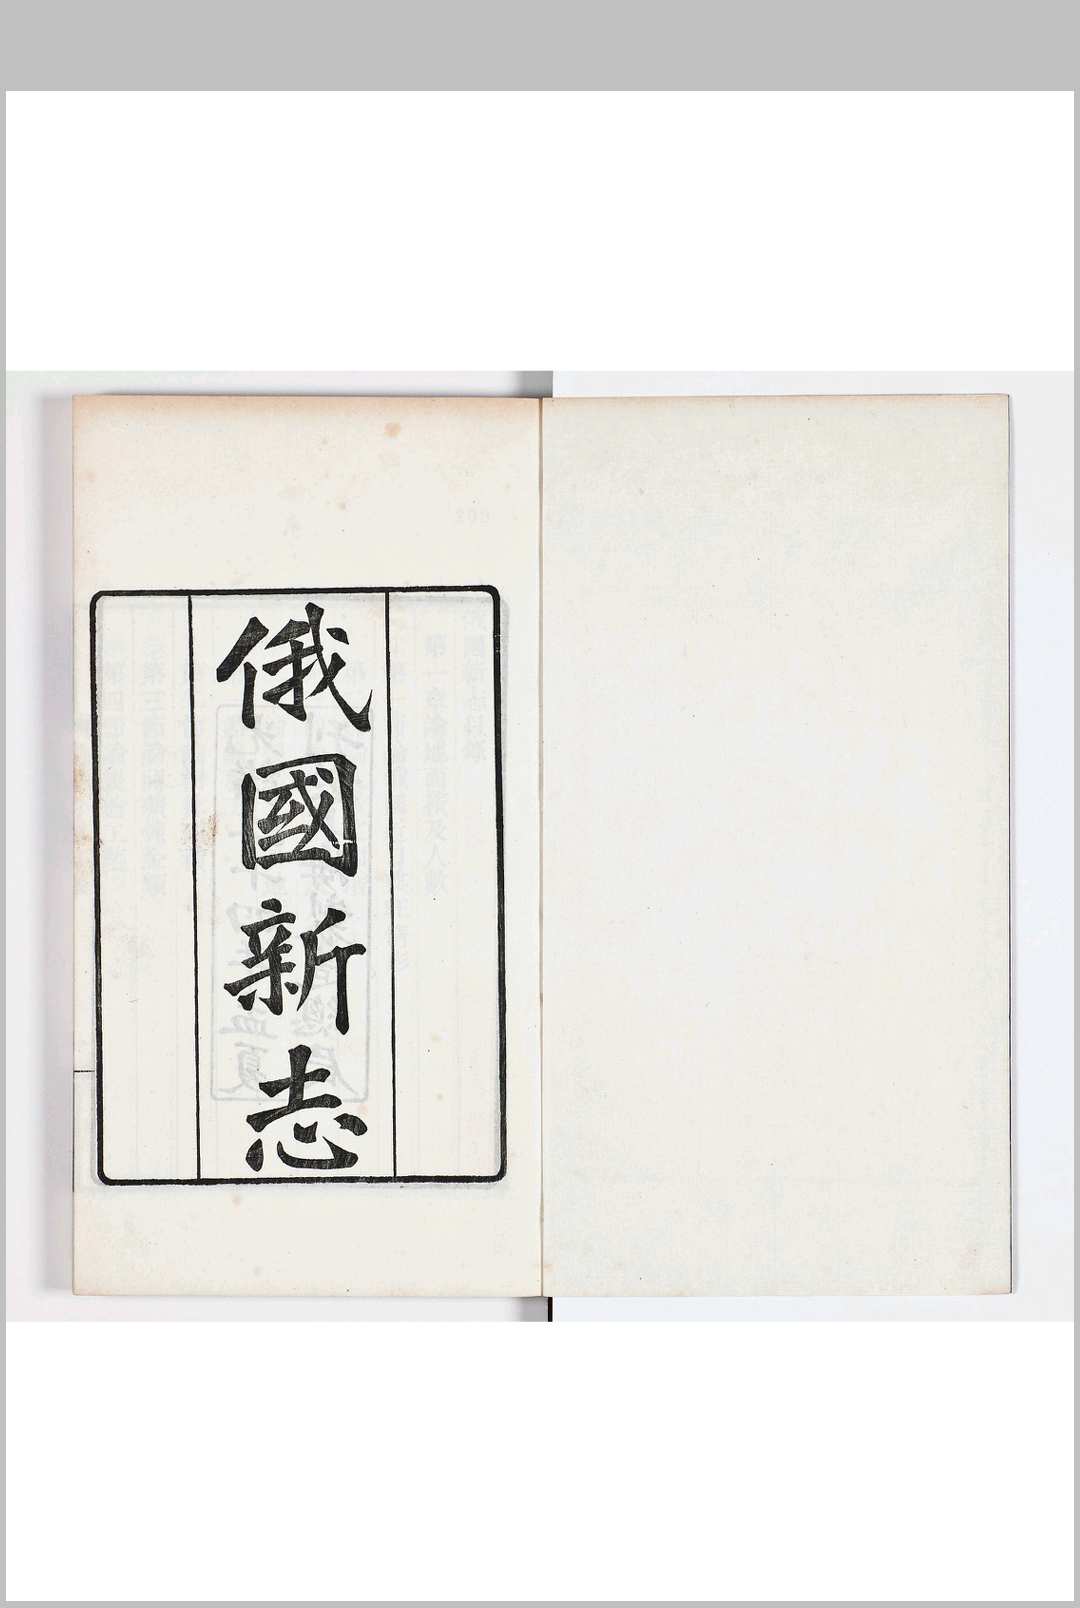 俄國新志